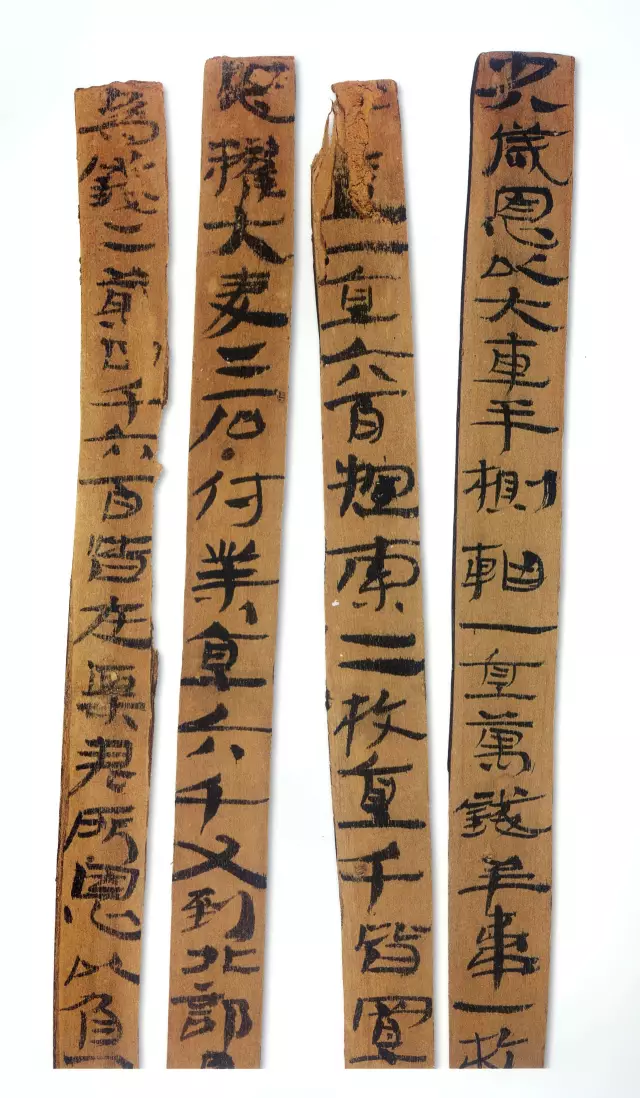 歲恩以大車半㯲軸一直萬錢羊韋一枚
一直六百㯱索二枚直千皆置
恩糴大麥二石付業直六千又到北部
為錢二萬四千六百皆在粟君所恩以負